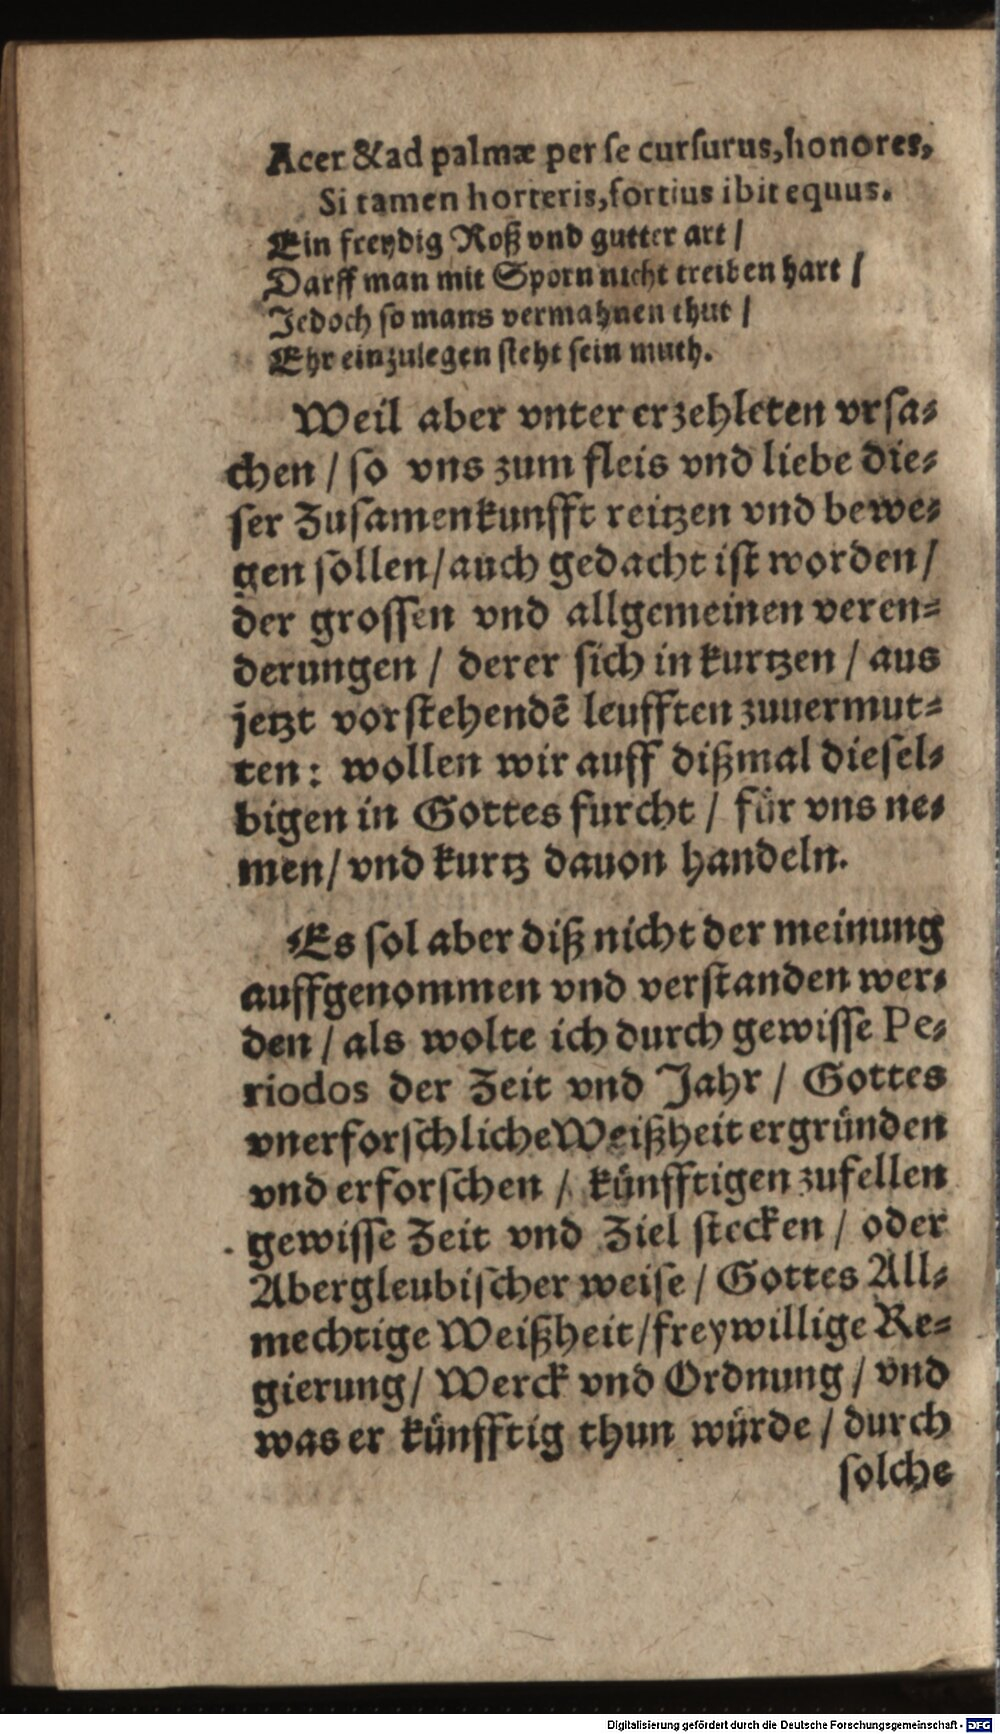 Acer & ad palmæ per se cursurus, honores,
Si tamen horteris, fortius ibit equus.
Ein freydig Roß vnd gutter art /
Darff man mit Sporn nicht treiben hart /
Jedoch so mans vermahnen thut /
Ehr einzulegen steht sein muth.
Weil aber vnter erzehleten vrsa-
chen / so vns zum fleis vnd liebe die-
ser Zusamenkunfft reitzen vnd bewe-
gen sollen / auch gedacht ist worden /
der grossen vnd allgemeinen veren-
derungen / derer sich in kurtzen / aus
jetzt vorstehendē leufften zuuermut-
ten: wollen wir auff dißmal diesel-
bigen in Gottes furcht / für vns ne-
men / vnd kurtz dauon handeln.
Es sol aber diß nicht der meinung
auffgenommen vnd verstanden wer-
den / als wolte ich durch gewisse Pe-
riodos der Zeit vnd Jahr / Gottes
vnerforschliche Weißheit ergründen
vnd erforschen / künfftigen zufellen
gewisse Zeit vnd Ziel stecken / oder
Abergleubischer weise / Gottes All-
mechtige Weißheit / freywillige Re-
gierung / Werck vnd Ordnung / vnd
was er künfftig thun würde / durch
solche
Digitalisierung gefördert durch die Deutsche Forschungsgemeinschaft - DFG